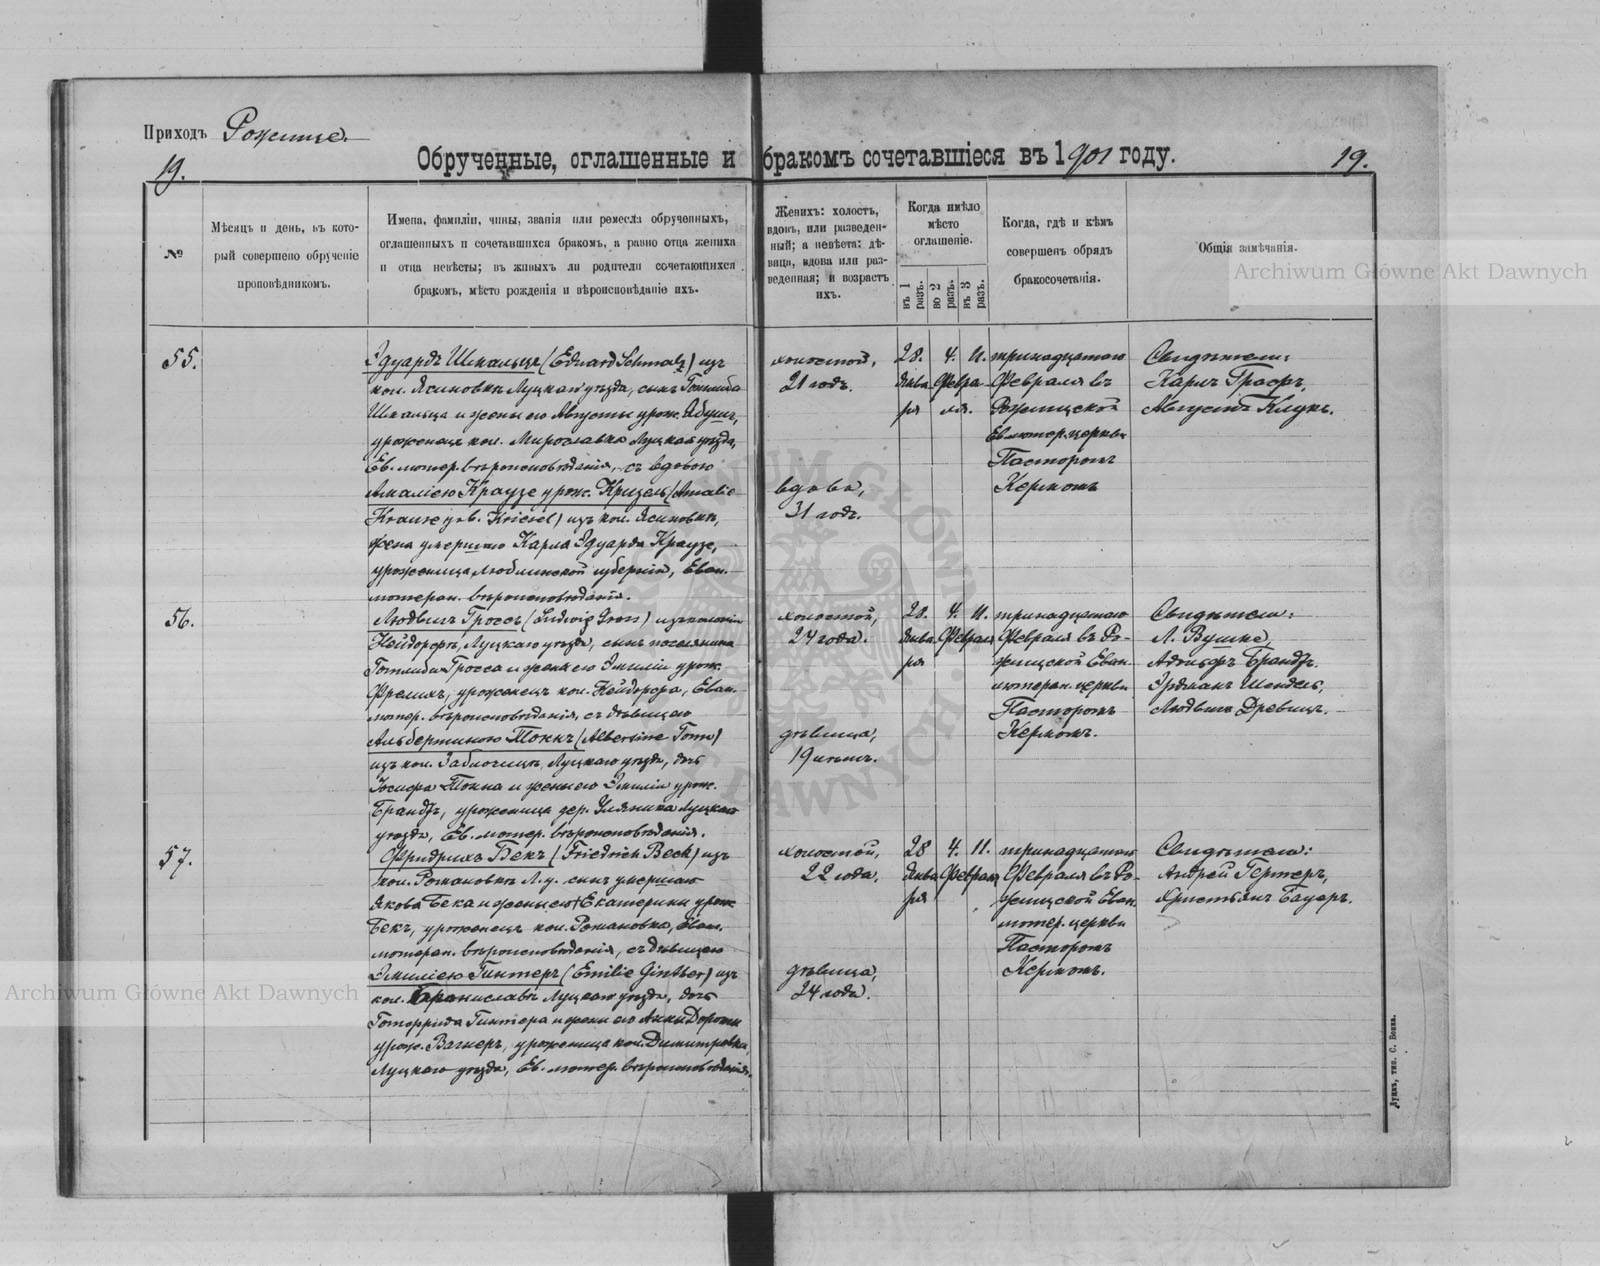 Приходъ Рожище.
19.
Обрученные, оглашенные и бракомъ сочетавшіеся въ 1901 году.
19.
№
Мѣсяцъ и день, въ кото-
рый совершено обрученіе
проповѣдникомъ.
Имена, фамиліи, чины, званія или ремесла обрученныхъ,
оглашенныхъ и сочетавшихся бракомъ, а равно отца жениха
и отца невѣсты; въ живыхъ ли родители сочетающихся
бракомъ, мѣсто рожденія и вѣроисповѣданіе ихъ.
Женихъ: холостъ,
вдовъ, или разведен-
ный; а невѣста: дѣ-
вица, вдова или раз-
веденная; и возрастъ
ихъ.
Когда имѣло
мѣсто
оглашеніе.
въ 1 разъ.
во 2 разъ.
въ 3 разъ.
Когда, гдѣ и кѣмъ
совершенъ обрядъ
бракосочетанія.
Общія замѣчанія.
Archiwum Główne Akt Dawnych
55.
Эдуардъ Шмальцъ (Eduard Schmalz) изъ
кол. Ясиновки Луцкаго уѣзда, сынъ Готлиба
Шмальца и жены его Августы урож.
уроженецъ кол. Мирославка Луцкаго уѣзда,
Ев. лютер. вѣроисповѣданія, съ вдовою
Амаліею Краузе урож. Кризель (Amalie
Krause geb. Kriesel) изъ кол. Ясиновки,
жена умершаго Карла Эдуарда Краузе,
уроженица Люблинской губерніи, Еван.
лютеран. вѣроисповѣданія.
холостой,
21 годъ.
вдова,
31 годъ.
28. 4. 11.
Янва Февра
ря ля.
тринадцатаго
Февраля въ
Рожищской
Ев. лютер. церкви
Пасторомъ
Керкомъ
Свидѣтели:
Карлъ Графъ,
Августъ Клукъ.
56.
Людвигъ Гроссъ (Ludwig Gross) изъ колоніи
Нейдорфъ, Луцкаго уѣзда, сынъ поселянина
Готлиба Гросса и жены его Эмиліи урож.
Фрелихъ, уроженецъ кол. Нейдорфа, Еван.
лютер. вѣроисповѣданія, съ дѣвицею
Альбертиною Тоннъ (Albertine Tonn)
изъ кол. Заболотцы, Луцкаго уѣзда, дочь
Іосифа Тонна и жены его Эмиліи урож.
Брандтъ, уроженица дер. Уляники Луцкаго
уѣзда, Ев. лютер. вѣроисповѣданія.
холостой,
24 года.
дѣвица,
19 лѣтъ.
28. 4. 11.
Янва Февраля
ря
тринадцатаго
Февраля въ Ро-
жищской Еван.
лютеран. церкви
Пасторомъ
Керкомъ.
Свидѣтели:
Л. Вушке,
Адольфъ Брандтъ.
Эрдманъ Шендель,
Людвигъ Древицъ.
57.
Фридрихъ Бекъ (Friedrich Beck) изъ
кол. Романовки Л. у. сынъ умершаго
Якова Бека и жены его Екатерины урож.
Бекъ, уроженецъ кол. Романовка, Еван.
лютеран. вѣроисповѣданія, съ дѣвицею
Эмиліею Гинтеръ (Emilie Ginther) изъ
кол. Брониславки Луцкаго уѣзда, дочь
Готфрида Гинтера и жены его Анны Доротеи
урож. Вагнеръ, уроженица кол. Димитровки,
Луцкаго уѣзда, Ев. лютер. вѣроисповѣданія.
холостой,
22 года.
дѣвица,
24 года.
28 4. 11.
Янва Февраля
ря
тринадцатаго
Февраля въ Ро-
жищской Еван.
лютер. церкви
Пасторомъ
Керкомъ.
Свидѣтели:
Андрей Гертеръ,
Христьянъ Бауэръ.
Archiwum Główne Akt Dawnych
Луцкъ, тип. С. Бокка.